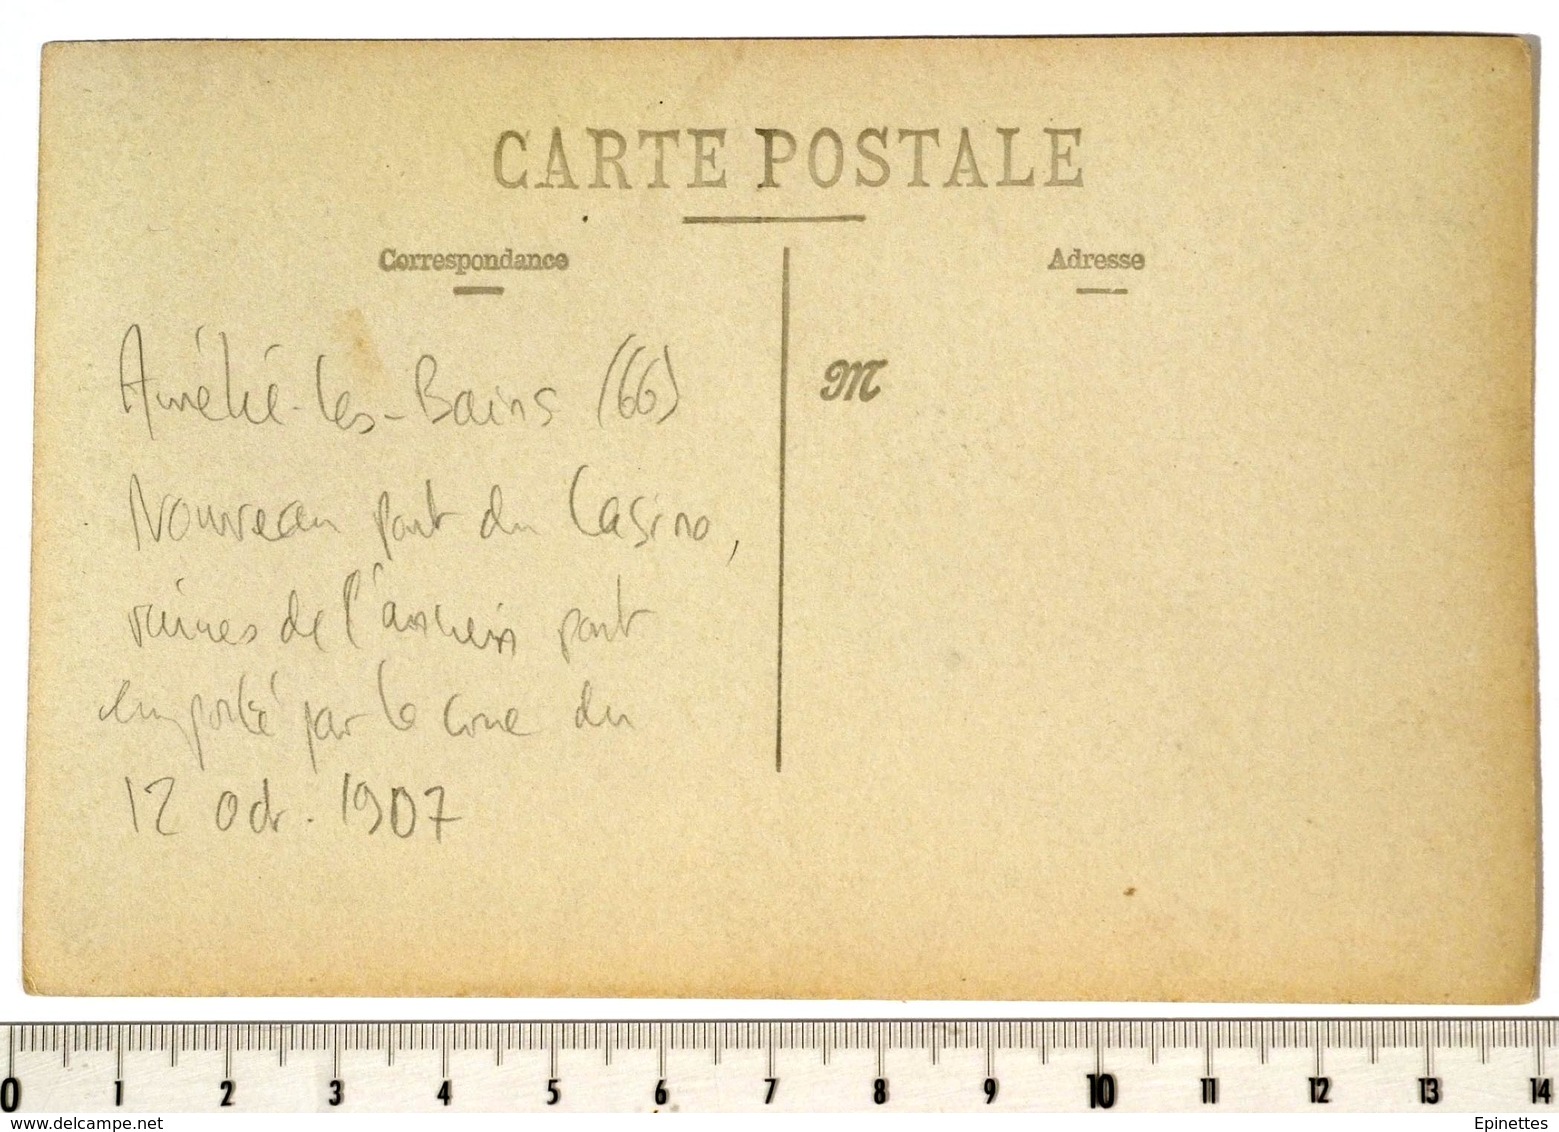 CARTE POSTALE
Correspondance
Adresse
M
Amélie-les-Bains (66)
Nouveau pont du Casino,
ruines de l'ancien pont
emporté par la crue du
12 oct. 1907
0 1 2 3 4 5 6 7 8 9 10 11 12 13 14
www.delcampe.net
Epinettes